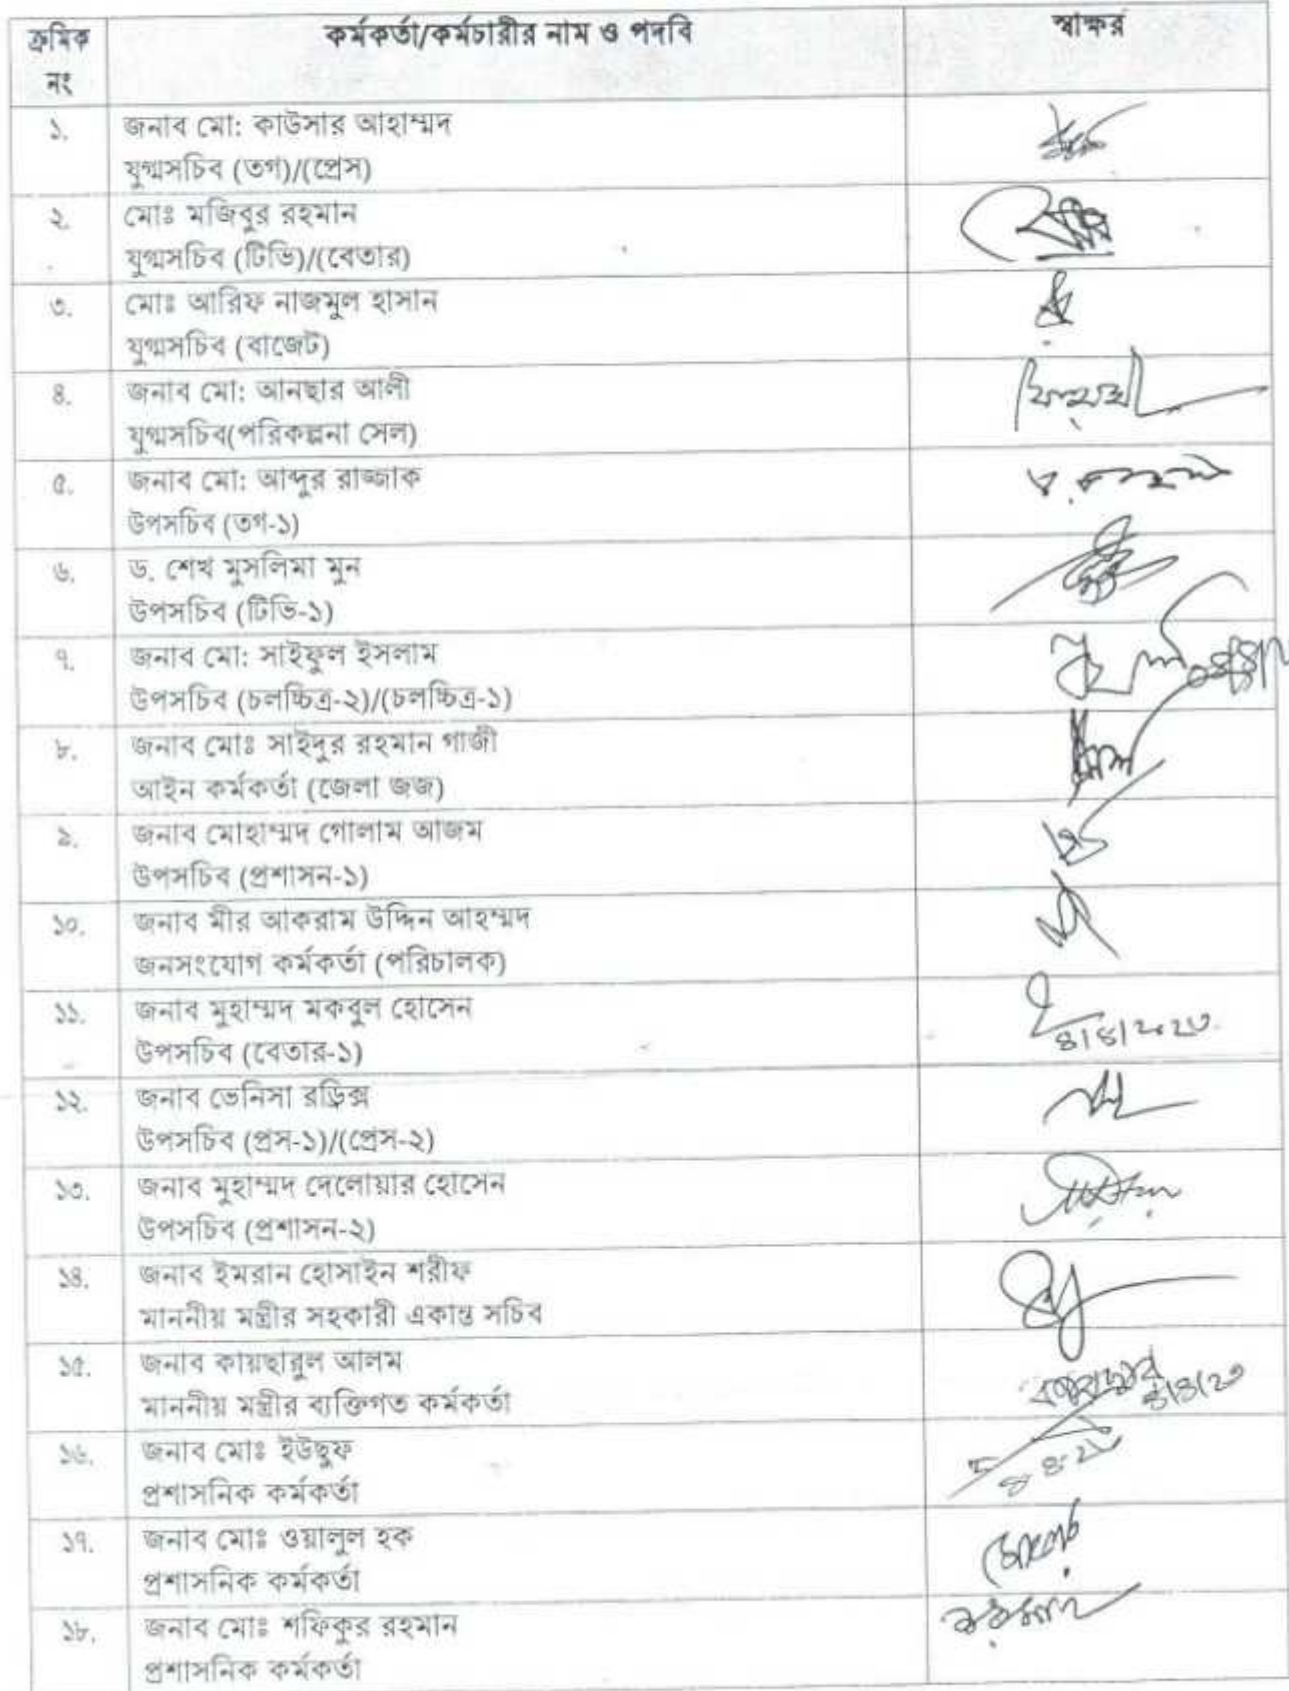 ক্রমিক নং কর্মকর্তা/কর্মচারীর নাম ও পদবি স্বাক্ষর
১. জনাব মো: কাউসার আহাম্মদ
যুগ্মসচিব (তগ)/(প্রেস)
২. মোঃ মজিবুর রহমান
যুগ্মসচিব (টিভি)/(বেতার)
৩. মোঃ আরিফ নাজমুল হাসান
যুগ্মসচিব (বাজেট)
৪. জনাব মো: আনছার আলী
যুগ্মসচিব(পরিকল্পনা সেল)
৫. জনাব মো: আব্দুর রাজ্জাক
উপসচিব (তগ-১)
৬. ড. শেখ মুসলিমা মুন
উপসচিব (টিভি-১)
৭. জনাব মো: সাইফুল ইসলাম
উপসচিব (চলচ্চিত্র-২)/(চলচ্চিত্র-১)
৮. জনাব মোঃ সাইদুর রহমান গাজী
আইন কর্মকর্তা (জেলা জজ)
৯. জনাব মোহাম্মদ গোলাম আজম
উপসচিব (প্রশাসন-১)
১০. জনাব মীর আকরাম উদ্দিন আহম্মদ
জনসংযোগ কর্মকর্তা (পরিচালক)
১১. জনাব মুহাম্মদ মকবুল হোসেন
উপসচিব (বেতার-১) ৪/৪/২০২৩
১২. জনাব ভেনিসা রড্রিক্স
উপসচিব (প্রস-১)/(প্রেস-২)
১৩. জনাব মুহাম্মদ দেলোয়ার হোসেন
উপসচিব (প্রশাসন-২)
১৪. জনাব ইমরান হোসাইন শরীফ
মাননীয় মন্ত্রীর সহকারী একান্ত সচিব
১৫. জনাব কায়ছারুল আলম
মাননীয় মন্ত্রীর ব্যক্তিগত কর্মকর্তা ৪/৪/২৩
১৬. জনাব মোঃ ইউছুফ
প্রশাসনিক কর্মকর্তা
১৭. জনাব মোঃ ওয়ালুল হক
প্রশাসনিক কর্মকর্তা
১৮. জনাব মোঃ শফিকুর রহমান
প্রশাসনিক কর্মকর্তা